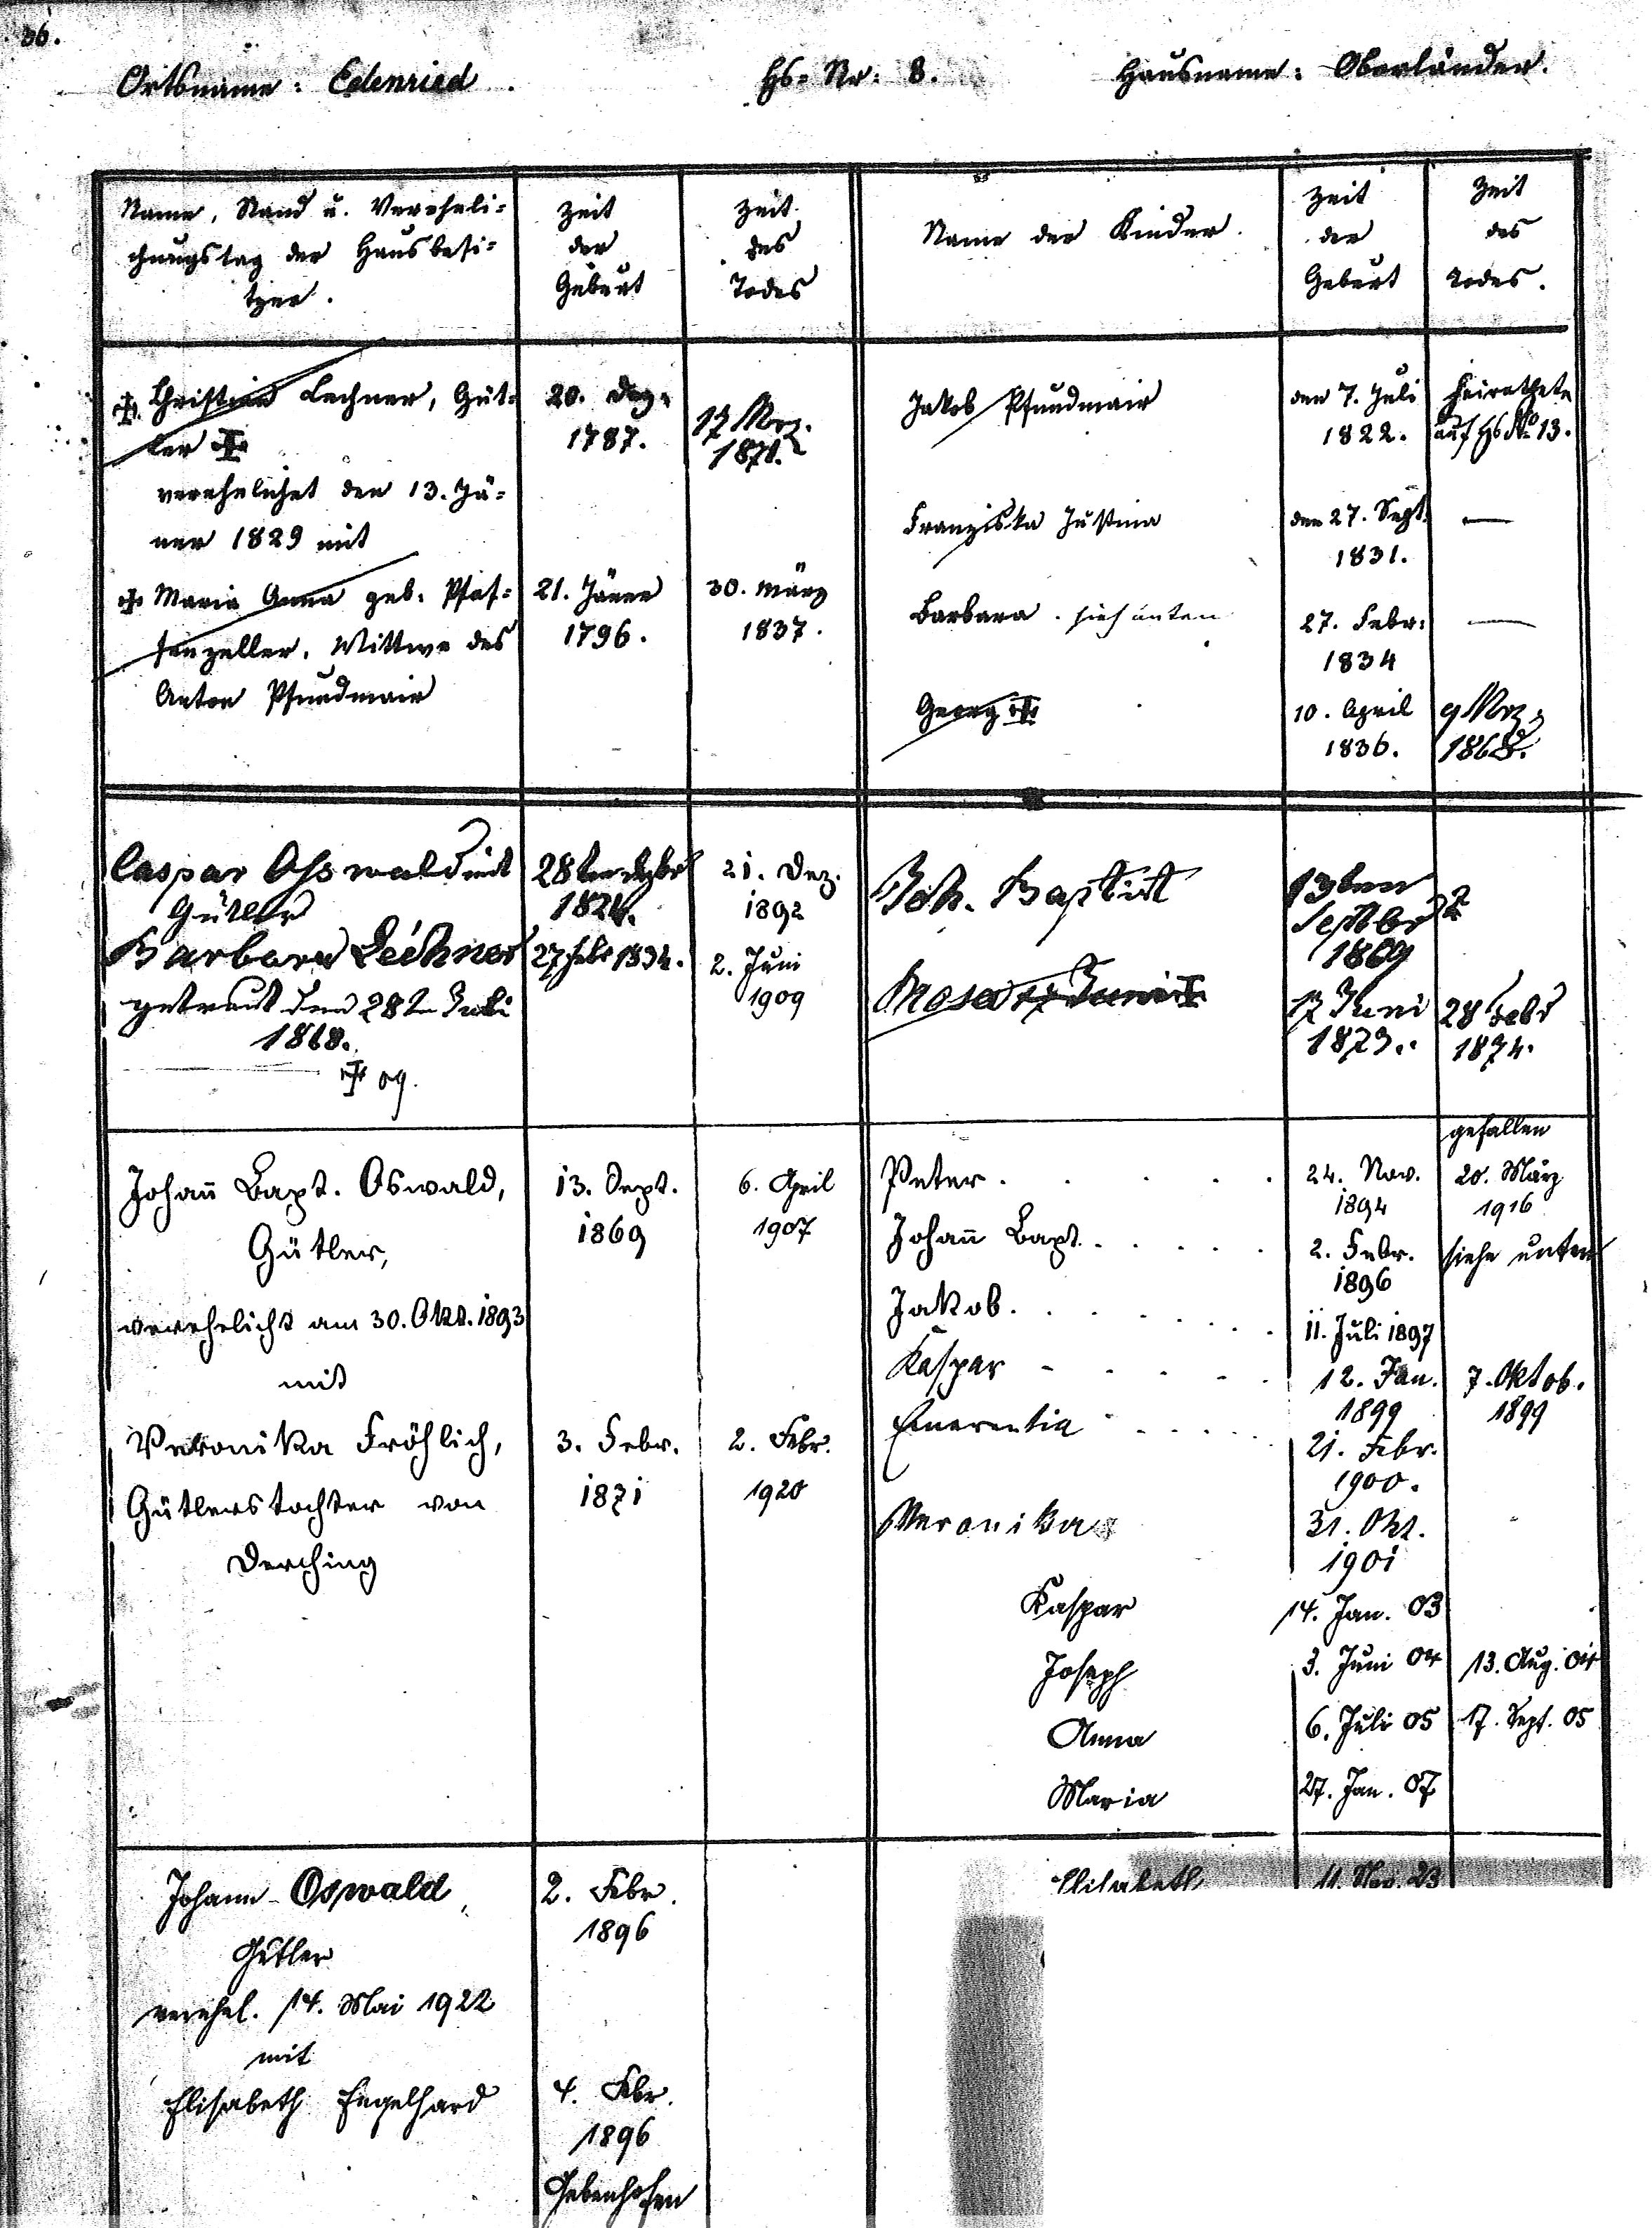 36.
Ortsname: Edenried.
Hs= Nr: 8.
Hausname: Oberländer.
Name, Stand u. Vereheli=
chungstag der Hausbesi=
tzer.
Zeit
der
Geburt
Zeit
des
Todes
Name der Kinder.
Zeit
der
Geburt
Zeit
des
Todes.
Christian Lechner, Güt=
ler
verehelichet den 13. Jä=
ner 1829 mit
20. Dez.
1787.
17 Mrz.
1871.
Maria Anna geb. Pfaf=
fenzeller, Wittwe des
Anton Pfundmair
21. Jäner
1796.
30. März
1837.
Jakob Pfundmair
den 7. Juli
1822.
heirathete
auf Hs No 13.
Franziska Justina
den 27. Sept.
1831.
—
Barbara. sieh unten
27. Febr.
1834
—
Georg
10. April
1836.
9 Mrz.
1868.
Caspar Oswald mit
Gütler
Barbara Lechner
getraut den 28ten Juli
1868.
09.
28ten Dezbr
27 Febr 1834.
21. Dez.
1892
2. Juni
1909
Joh. Baptist
13ten
Septbr
1869
Rosa 17 Juni
17 Juni
1873.
28 Febr
1874.
Johann Bapt. Oswald,
Gütler,
verehelicht am 30. Okt. 1893
mit
Veronika Fröhlich,
Gütlerstochter von
Derching
13. Sept.
1869
6. April
1907
3. Febr.
1871
2. Febr.
1920
Peter.
24. Nov.
1894
gefallen
20. März
1916
Johann Bapt.
2. Febr.
1896
siehe unten
Jakob.
11. Juli 1897
Kaspar
12. Jan.
1899
7. Oktob.
1899
Emerentia
21. Febr.
1900.
Veronika
31. Okt.
1901
Kaspar
14. Jan. 03
Joseph
3. Juni 04
13. Aug. 04
Anna
6. Juli 05
17. Sept. 05
Maria
27. Jan. 07
Johann Oswald,
Gütler
verehel. 14. Mai 1922
mit
Elisabeth Engelhard
2. Febr.
1896
4. Febr.
1896
Gebenhofen
Elisabeth
11. Nov. 23